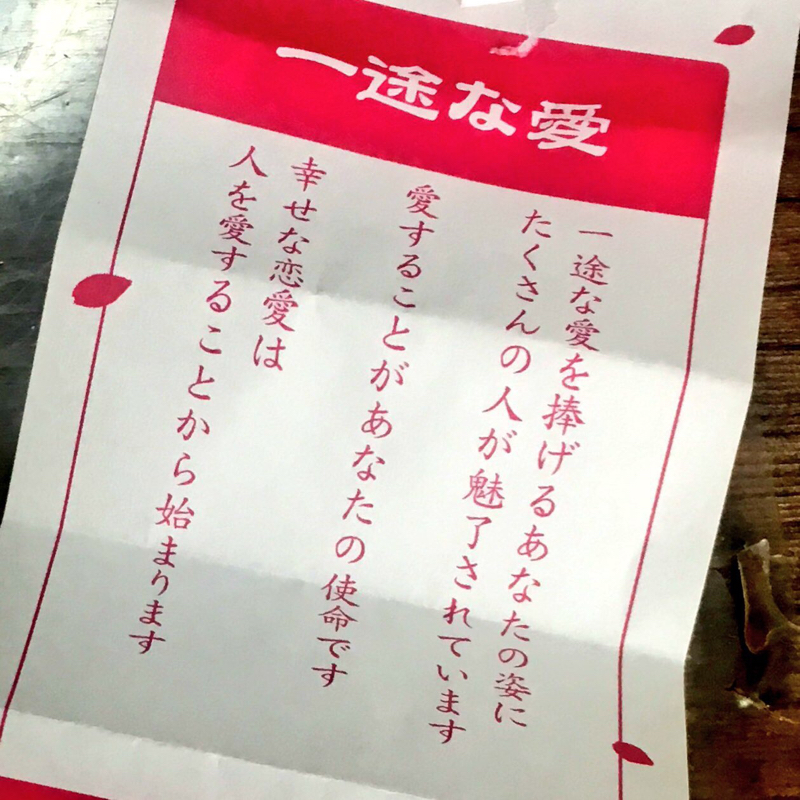 一途な愛
一途な愛を捧げるあなたの姿に
たくさんの人が魅了されています
愛することがあなたの使命です
幸せな恋愛は
人を愛することから始まります